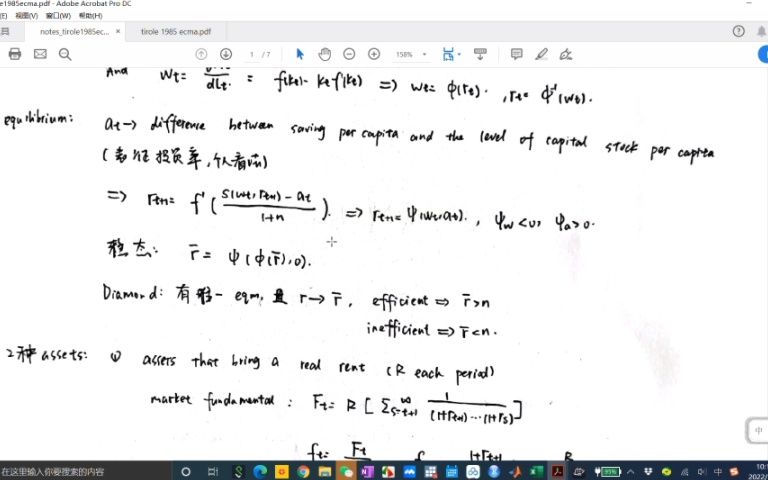 e1985ecma.pdf - Adobe Acrobat Pro DC
(E) 视图(V) 窗口(W) 帮助(H)
具 notes_tirole1985ec... × tirole 1985 ecma.pdf
1 / 7 158%
And Wt= dLt = f(kt)- ktf'(kt) => wt= φ(rt). , rt= φ⁻¹(wt).
equilibrium: at → difference between saving per capita and the level of capital stock per capita
=> rt+1= f'( (s(wt, rt+1) - at)/(1+n) ). => rt+1= ψ(wt,at). , ψw<0, ψa>0.
稳态: r̄ = ψ(φ(r̄),0).
Diamond: 有唯一 eqm, 且 r→r̄, efficient => r̄>n
inefficient => r̄<n.
2种assets: ① assets that bring a real rent (R each period)
market fundamental : Ft= R [ Σ_{s=t+1}^∞ 1/((1+rt+1)...(1+rs)) ]
ft= Ft 1+rt+1 R
中
在这里输入你要搜索的内容
99%
中
10:
2022/